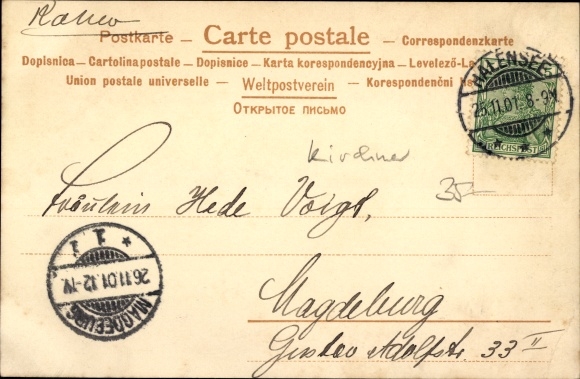 Postkarte — Carte postale — Correspondenzkarte
Dopisnica — Cartolina postale — Dopisnice — Karta korespondencyjna — Levelező-
Union postale universelle — Weltpostverein — Korespondenční
ОТКРЫТОЕ ПИСЬМО
HALENSEE
25.11.01. 8-9N
REICHSPOST
Kirchner
35.-
Fräulein Hede Voigt,
MAGDEBURG
26.11.01. 12-1V.
1
Magdeburg
Gustav Adolfstr. 33 II